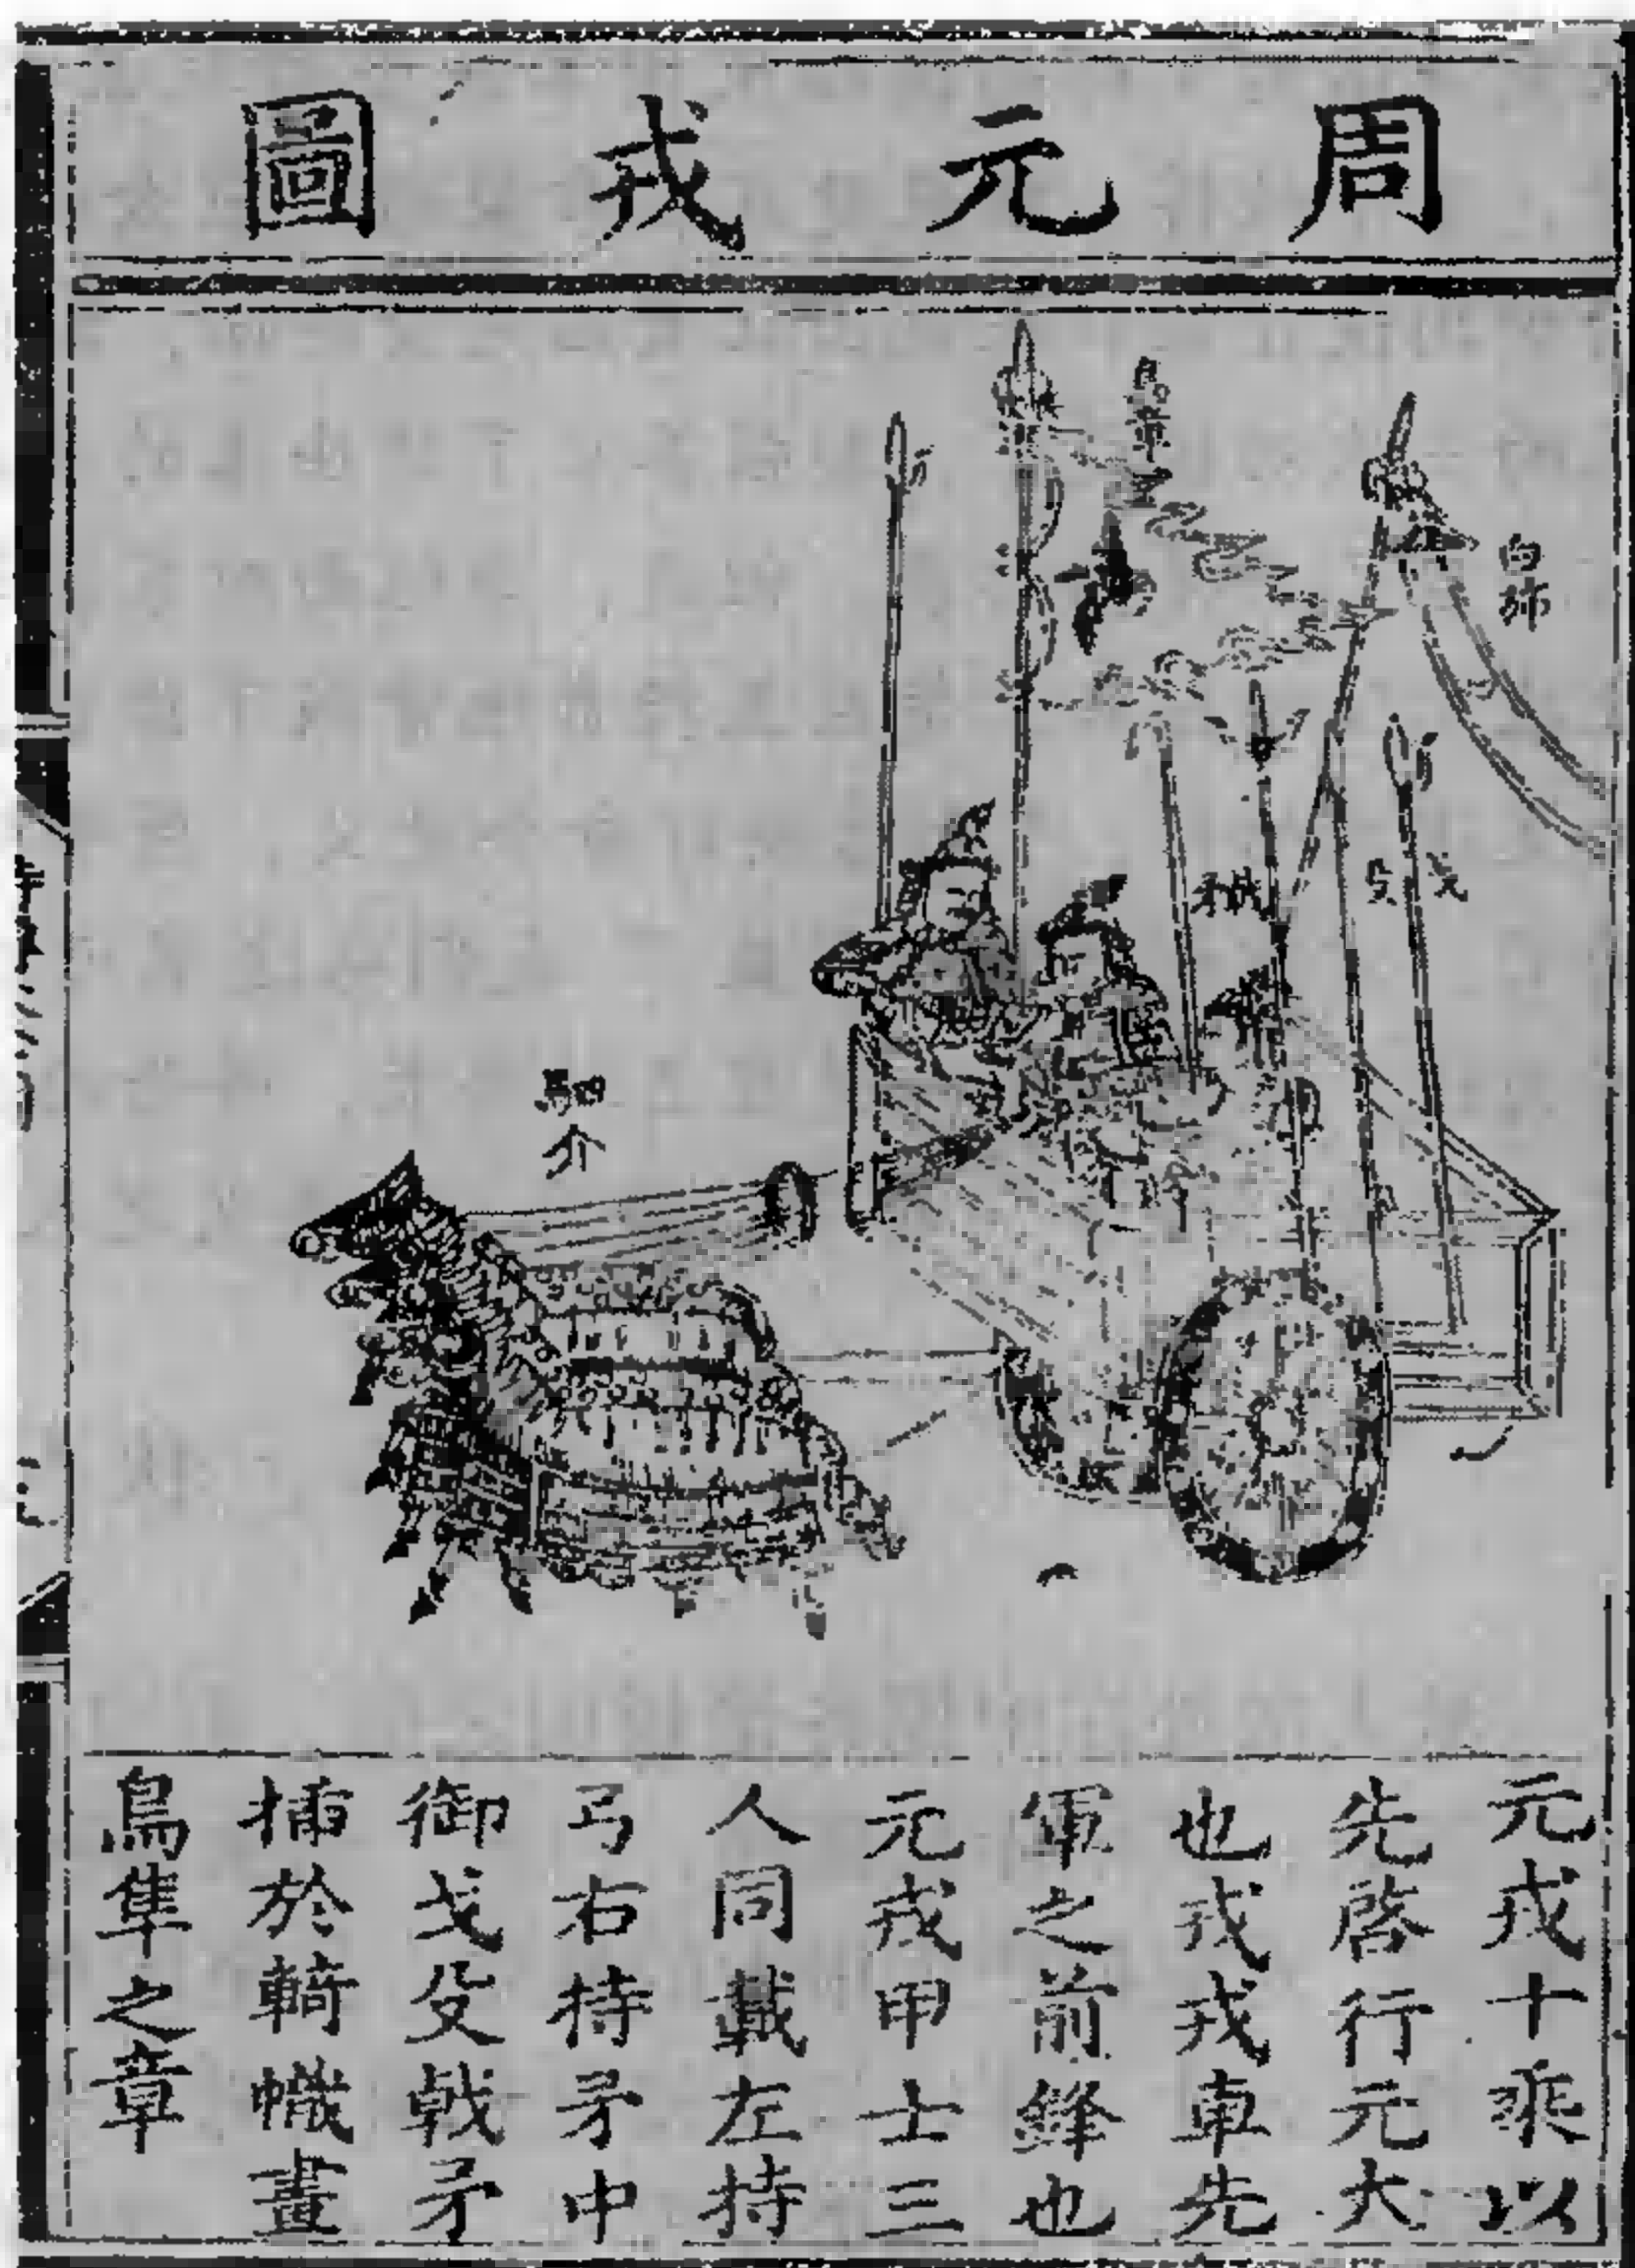 周元戎圖
鳥章
白斾
矛戟
殳戈
四馬介
元戎十乘以
先啓行元大
也戎戎車先
軍之前鋒也
元戎甲士三
人同載左持
弓右持矛中
御戈殳戟矛
插於輢幟畫
鳥隼之章